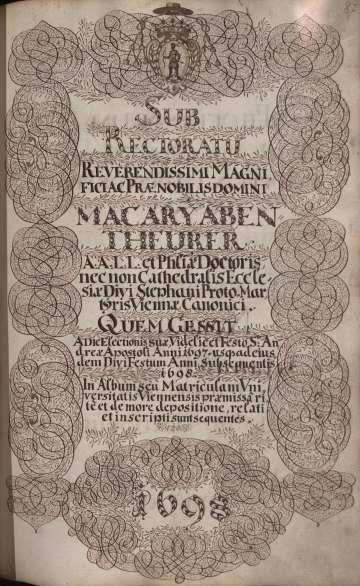 SUB
RECTORATU
REVERENDISSIMI MAGNI
FICI AC PRÆNOBILIS DOMINI
MACARY ABEN
THEURER
A.A.L.L. et Phiłæ Doctoris
nec non Cathedralis Eccle
siæ Divi Stephani Proto-Mar
tÿris Viennæ Canonici.
QUEM GESSIT
A Die Electionis Suæ Videlicet Festo S: An
dreæ Apostoli Anni 1697. usq₃ ad eius
dem Divi Festum Anni Subsequentis
1698.
In Album seu Matriculam Vni
versitatis Viennensis præmissa ri
tè et de more depositione, relati
et inscripti sunt sequentes.
1698